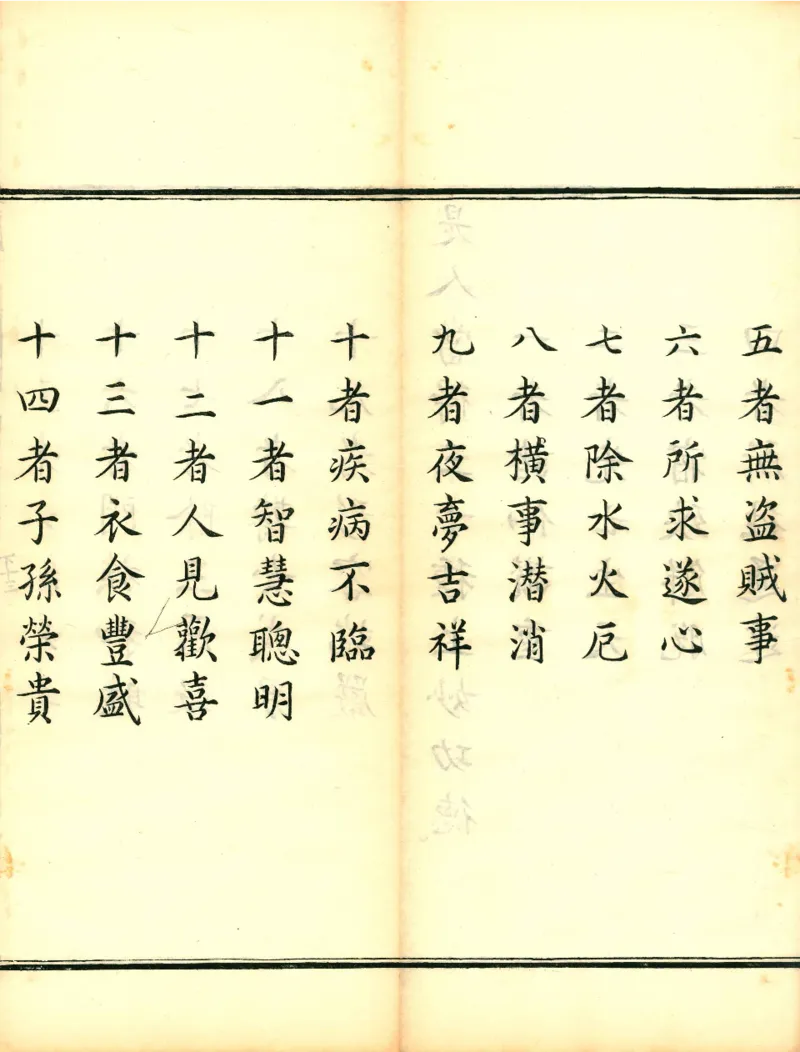 五者無盜賊事
六者所求遂心
七者除水火厄
八者橫事潛消
九者夜夢吉祥
十者疾病不臨
十一者智慧聰明
十二者人見歡喜
十三者衣食豐盛
十四者子孫榮貴